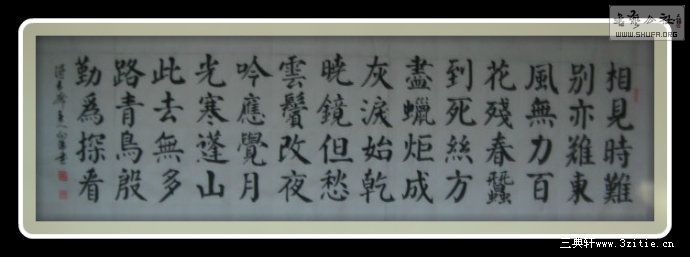 相見時難
別亦難東
風無力百
花殘春蠶
到死絲方
盡蠟炬成
灰淚始乾
曉鏡但愁
雲鬢改夜
吟應覺月
光寒蓬山
此去無多
路青鳥殷
勤爲探看
WWW.SHUFA.ORG
三典轩www.3zitie.cn